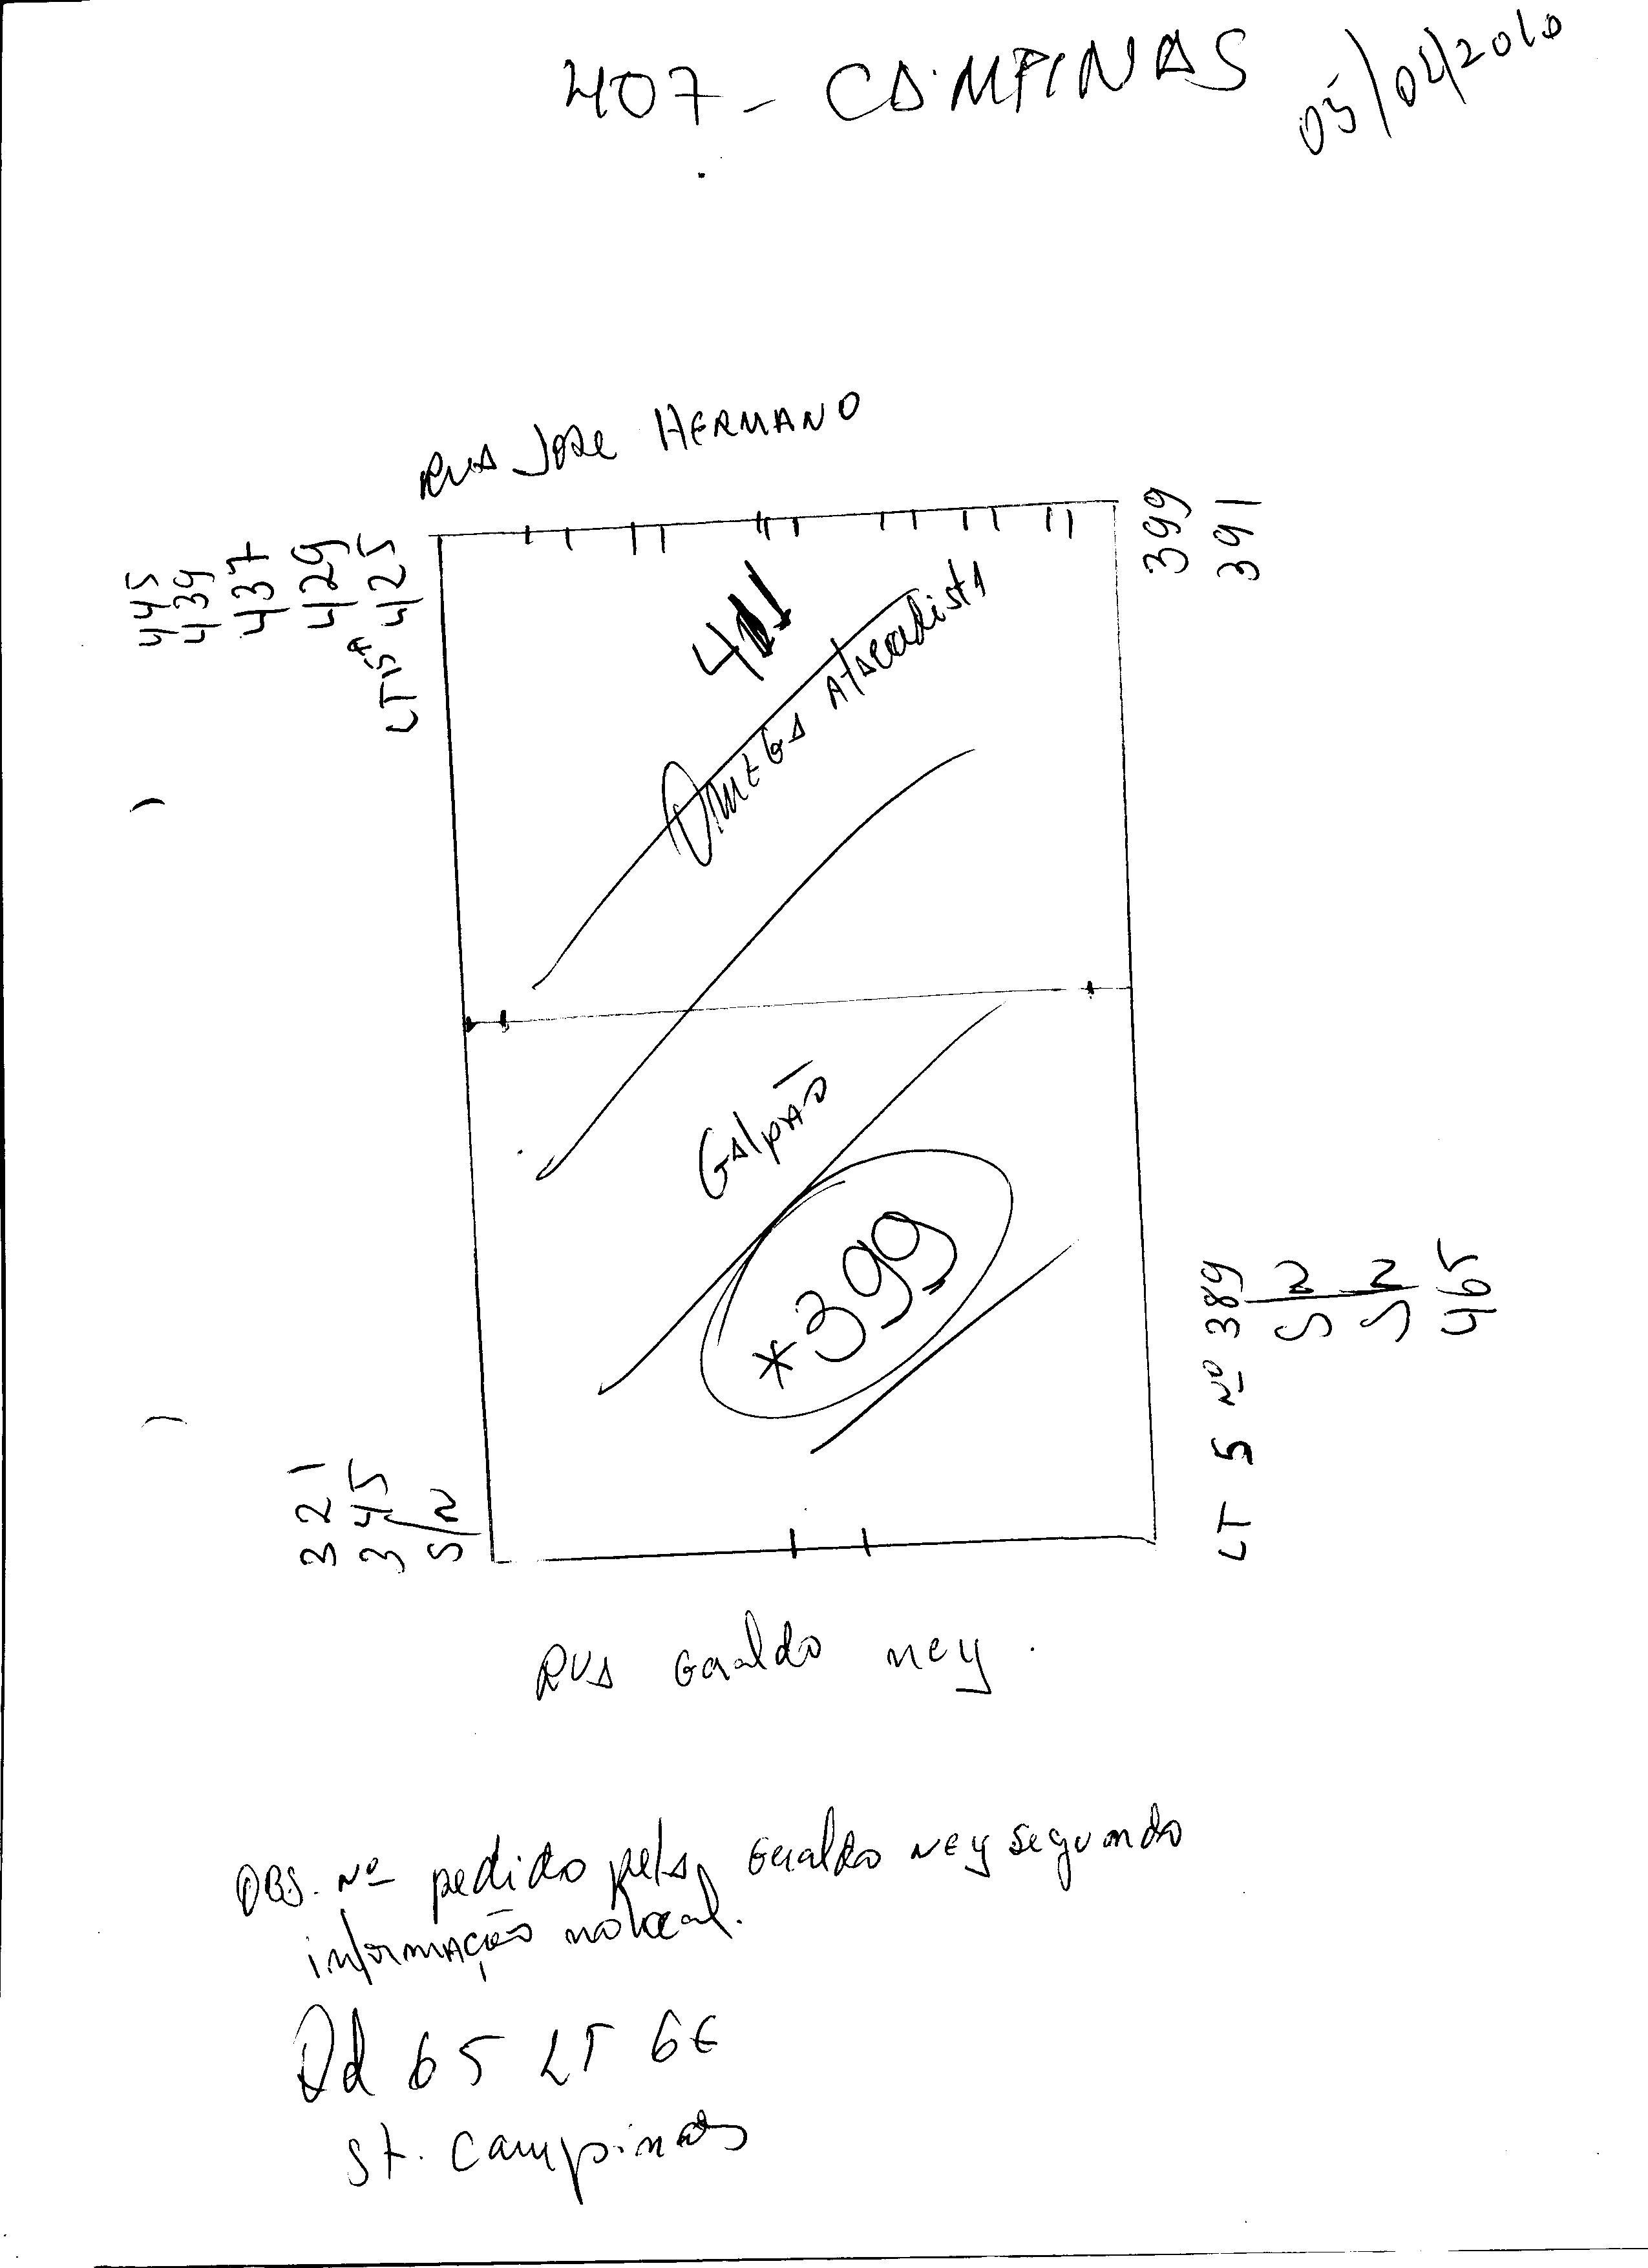 407 - CAMPINAS
05/04/2010
RUA JOSE HERMANO
445
439
437
429
425
LT 15A
399
391
411
OMEGA Atacadista
GALPÃO
*399
321
345
S/N
LT 5 Nº 389
S/N
S/N
465
RUA Geraldo ney.
OBS. Nº pedido pela Geraldo NEY segundo
informação no local.
Qd 65 LT 6E
St. Campinas